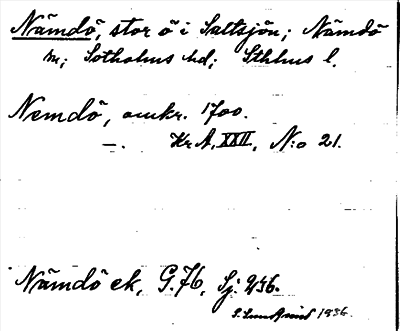 Nämdö, stor ö i Saltsjön; Nämdö
sn; Sotholms hd; Sthlms l.
Nemdö, omkr. 1700.
–. Kr A, XXII, N:o 21.
Nämdö ek, G. 76, Sj.
1936.